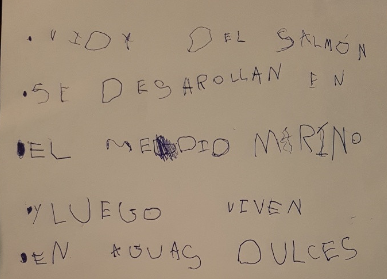 · VIDY DEL SALMÓN
· SE DESAROLLAN EN
· EL MEDIO MARINO
· Y LUEGO VIVEN
· EN AGUAS DULCES